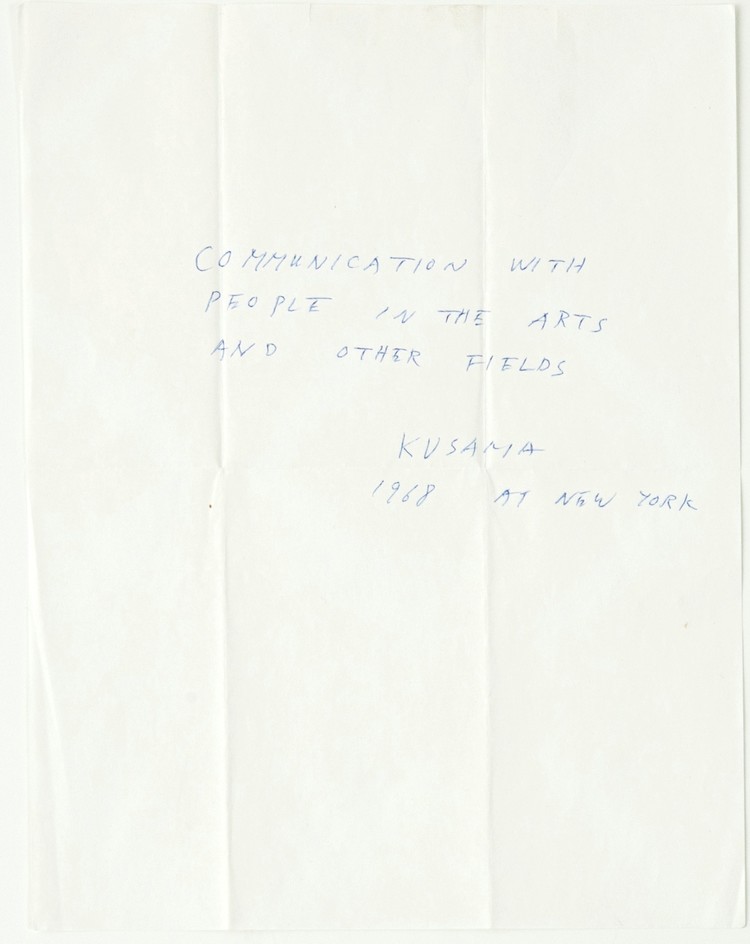 COMMUNICATION WITH
PEOPLE IN THE ARTS
AND OTHER FIELDS
KUSAMA
1968 AT NEW YORK